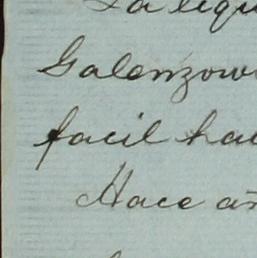 La
Galenzow
facil ha
Hace añ